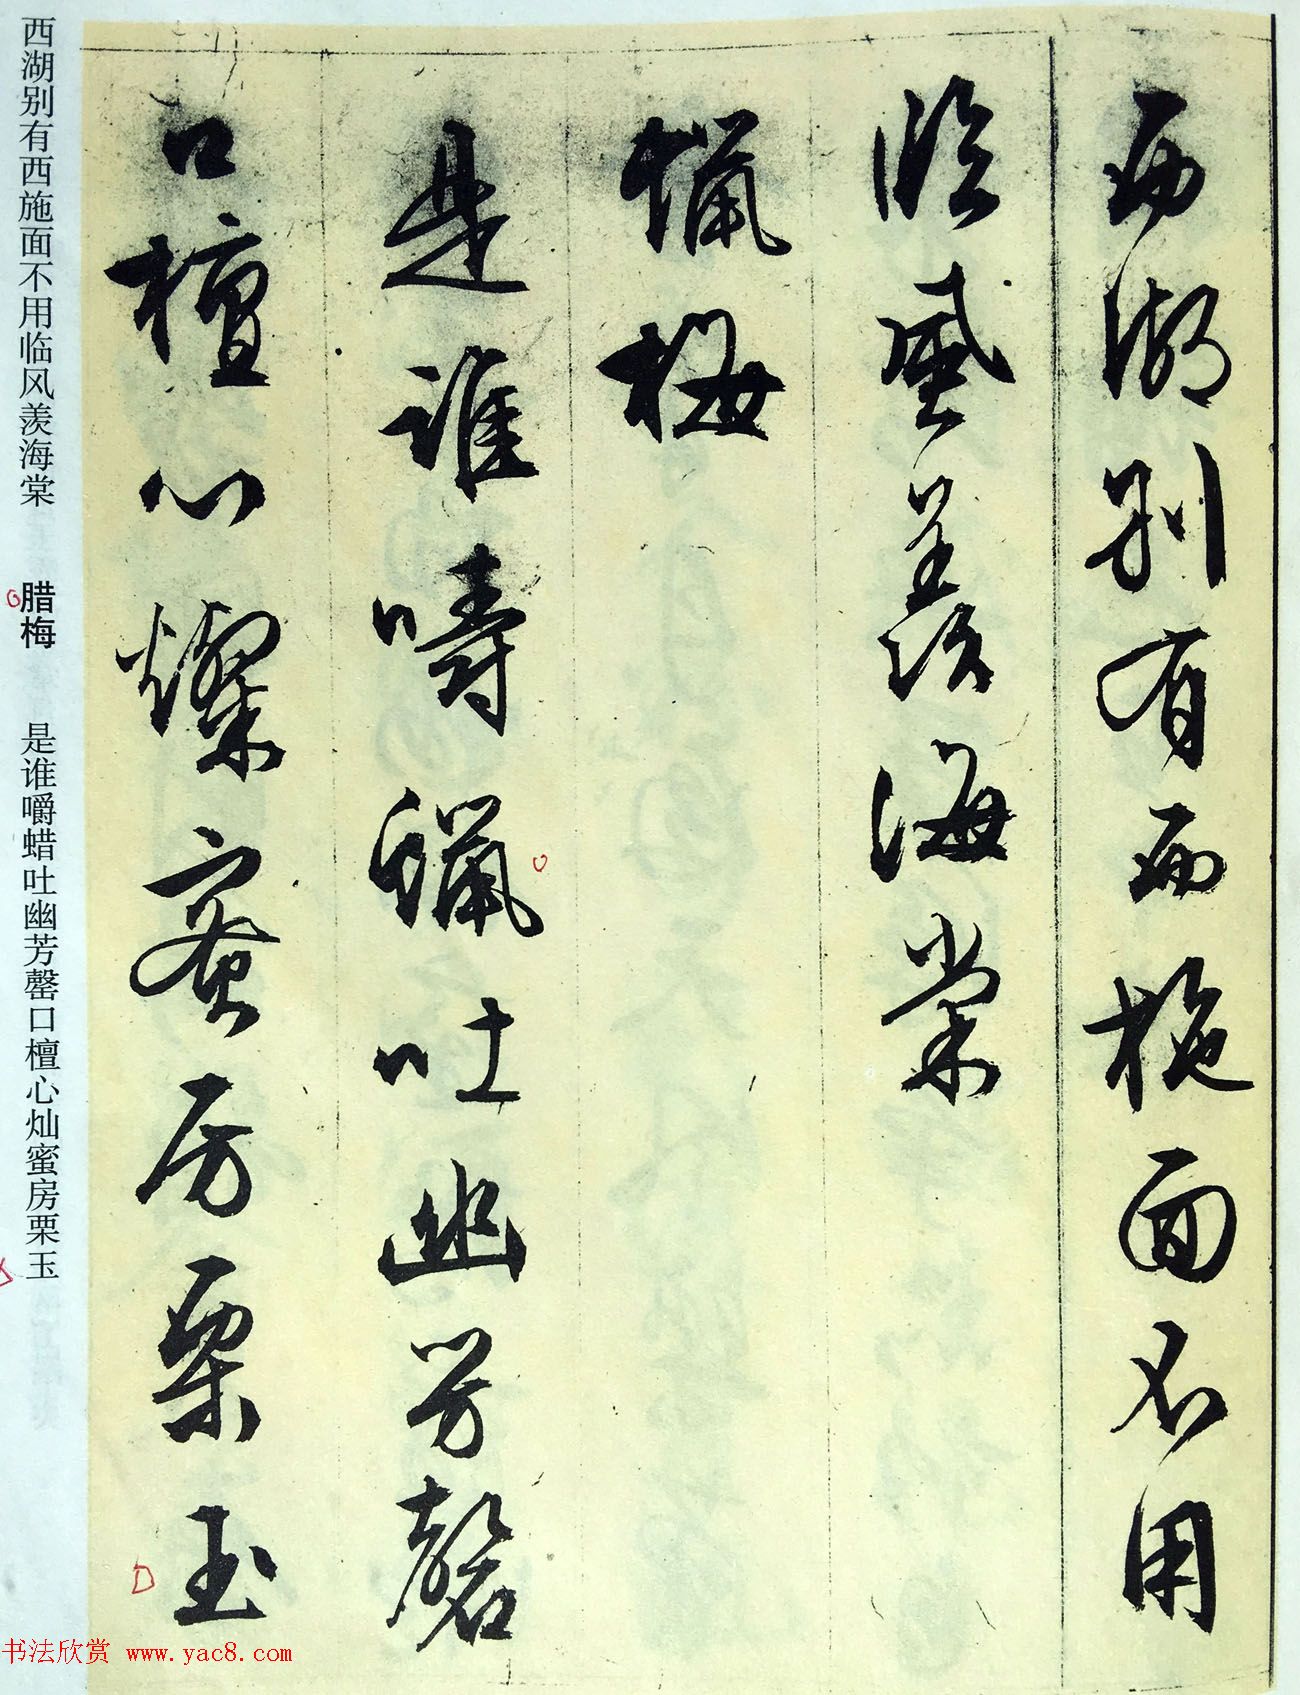 西湖别有西施面不用
臨風羨海棠
蠟梅
是誰嚼蠟吐幽芳磬
口檀心燦蜜房栗玉
西湖别有西施面不用临风羡海棠 腊梅 是谁嚼蜡吐幽芳罄口檀心灿蜜房栗玉
书法欣赏 www.yac8.com